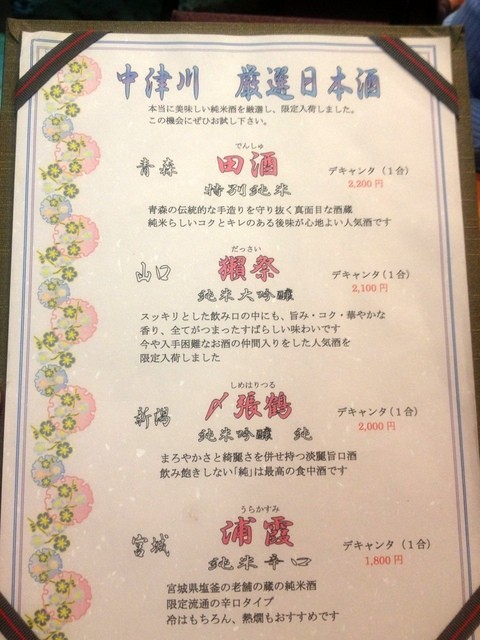 中津川　厳選日本酒
本当に美味しい純米酒を厳選し、限定入荷しました。
この機会にぜひお試し下さい。
でんしゅ
青森　田酒　デキャンタ（1合）
特別純米　2,200円
青森の伝統的な手造りを守り抜く真面目な酒蔵
純米らしいコクとキレのある後味が心地よい人気酒です
だっさい
山口　獺祭　デキャンタ（1合）
純米大吟醸　2,100円
スッキリとした飲み口の中にも、旨み・コク・華やかな
香り、全てがつまったすばらしい味わいです
今や入手困難なお酒の仲間入りをした人気酒を
限定入荷しました
しめはりつる
新潟　〆張鶴　デキャンタ（1合）
純米吟醸　純　2,000円
まろやかさと綺麗さを併せ持つ淡麗旨口酒
飲み飽きしない「純」は最高の食中酒です
うらかすみ
宮城　浦霞　デキャンタ（1合）
純米辛口　1,800円
宮城県塩釜の老舗の蔵の純米酒
限定流通の辛口タイプ
冷はもちろん、熱燗もおすすめです